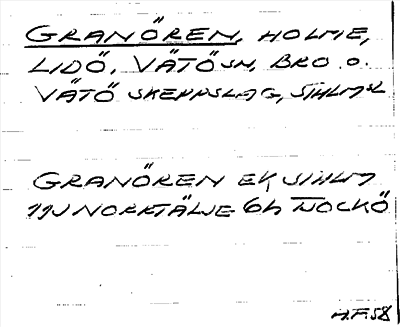 GRANÖREN, HOLME,
LIDÖ, VÄTÖ SN, BRO O.
VÄTÖ SKEPPSLAG, STHLM SL
GRANÖREN EK STHLM
11J NORRTÄLJE 6h TJOCKÖ
H.F. 58